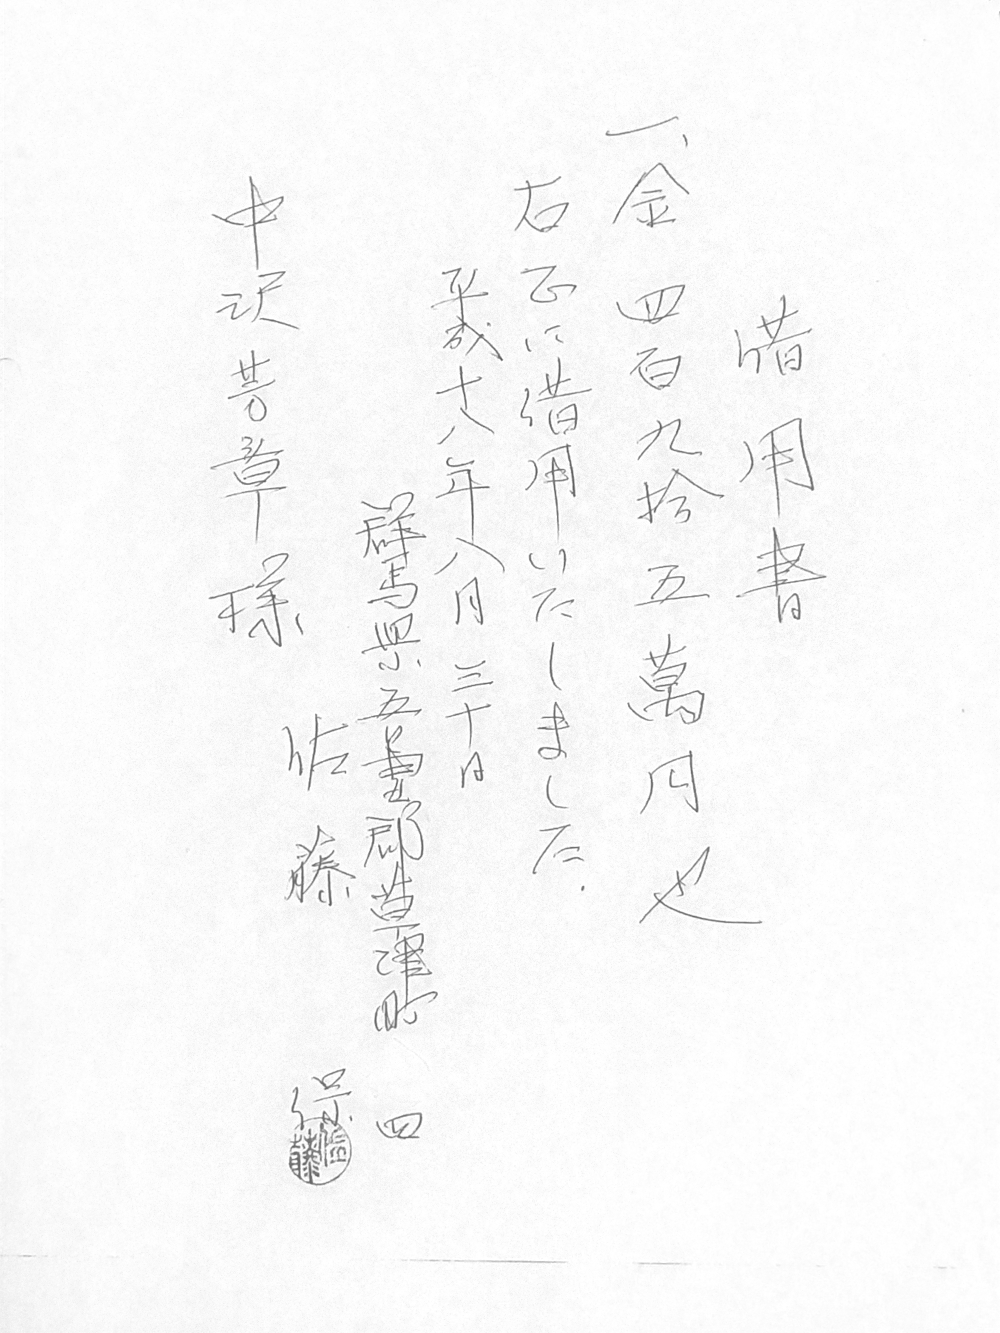 借用書
一、金四百九拾五萬円也
右正に借用いたしました.
平成十八年八月三十日
群馬県吾妻郡草津町 四
佐藤 保
佐藤
中沢芳章様